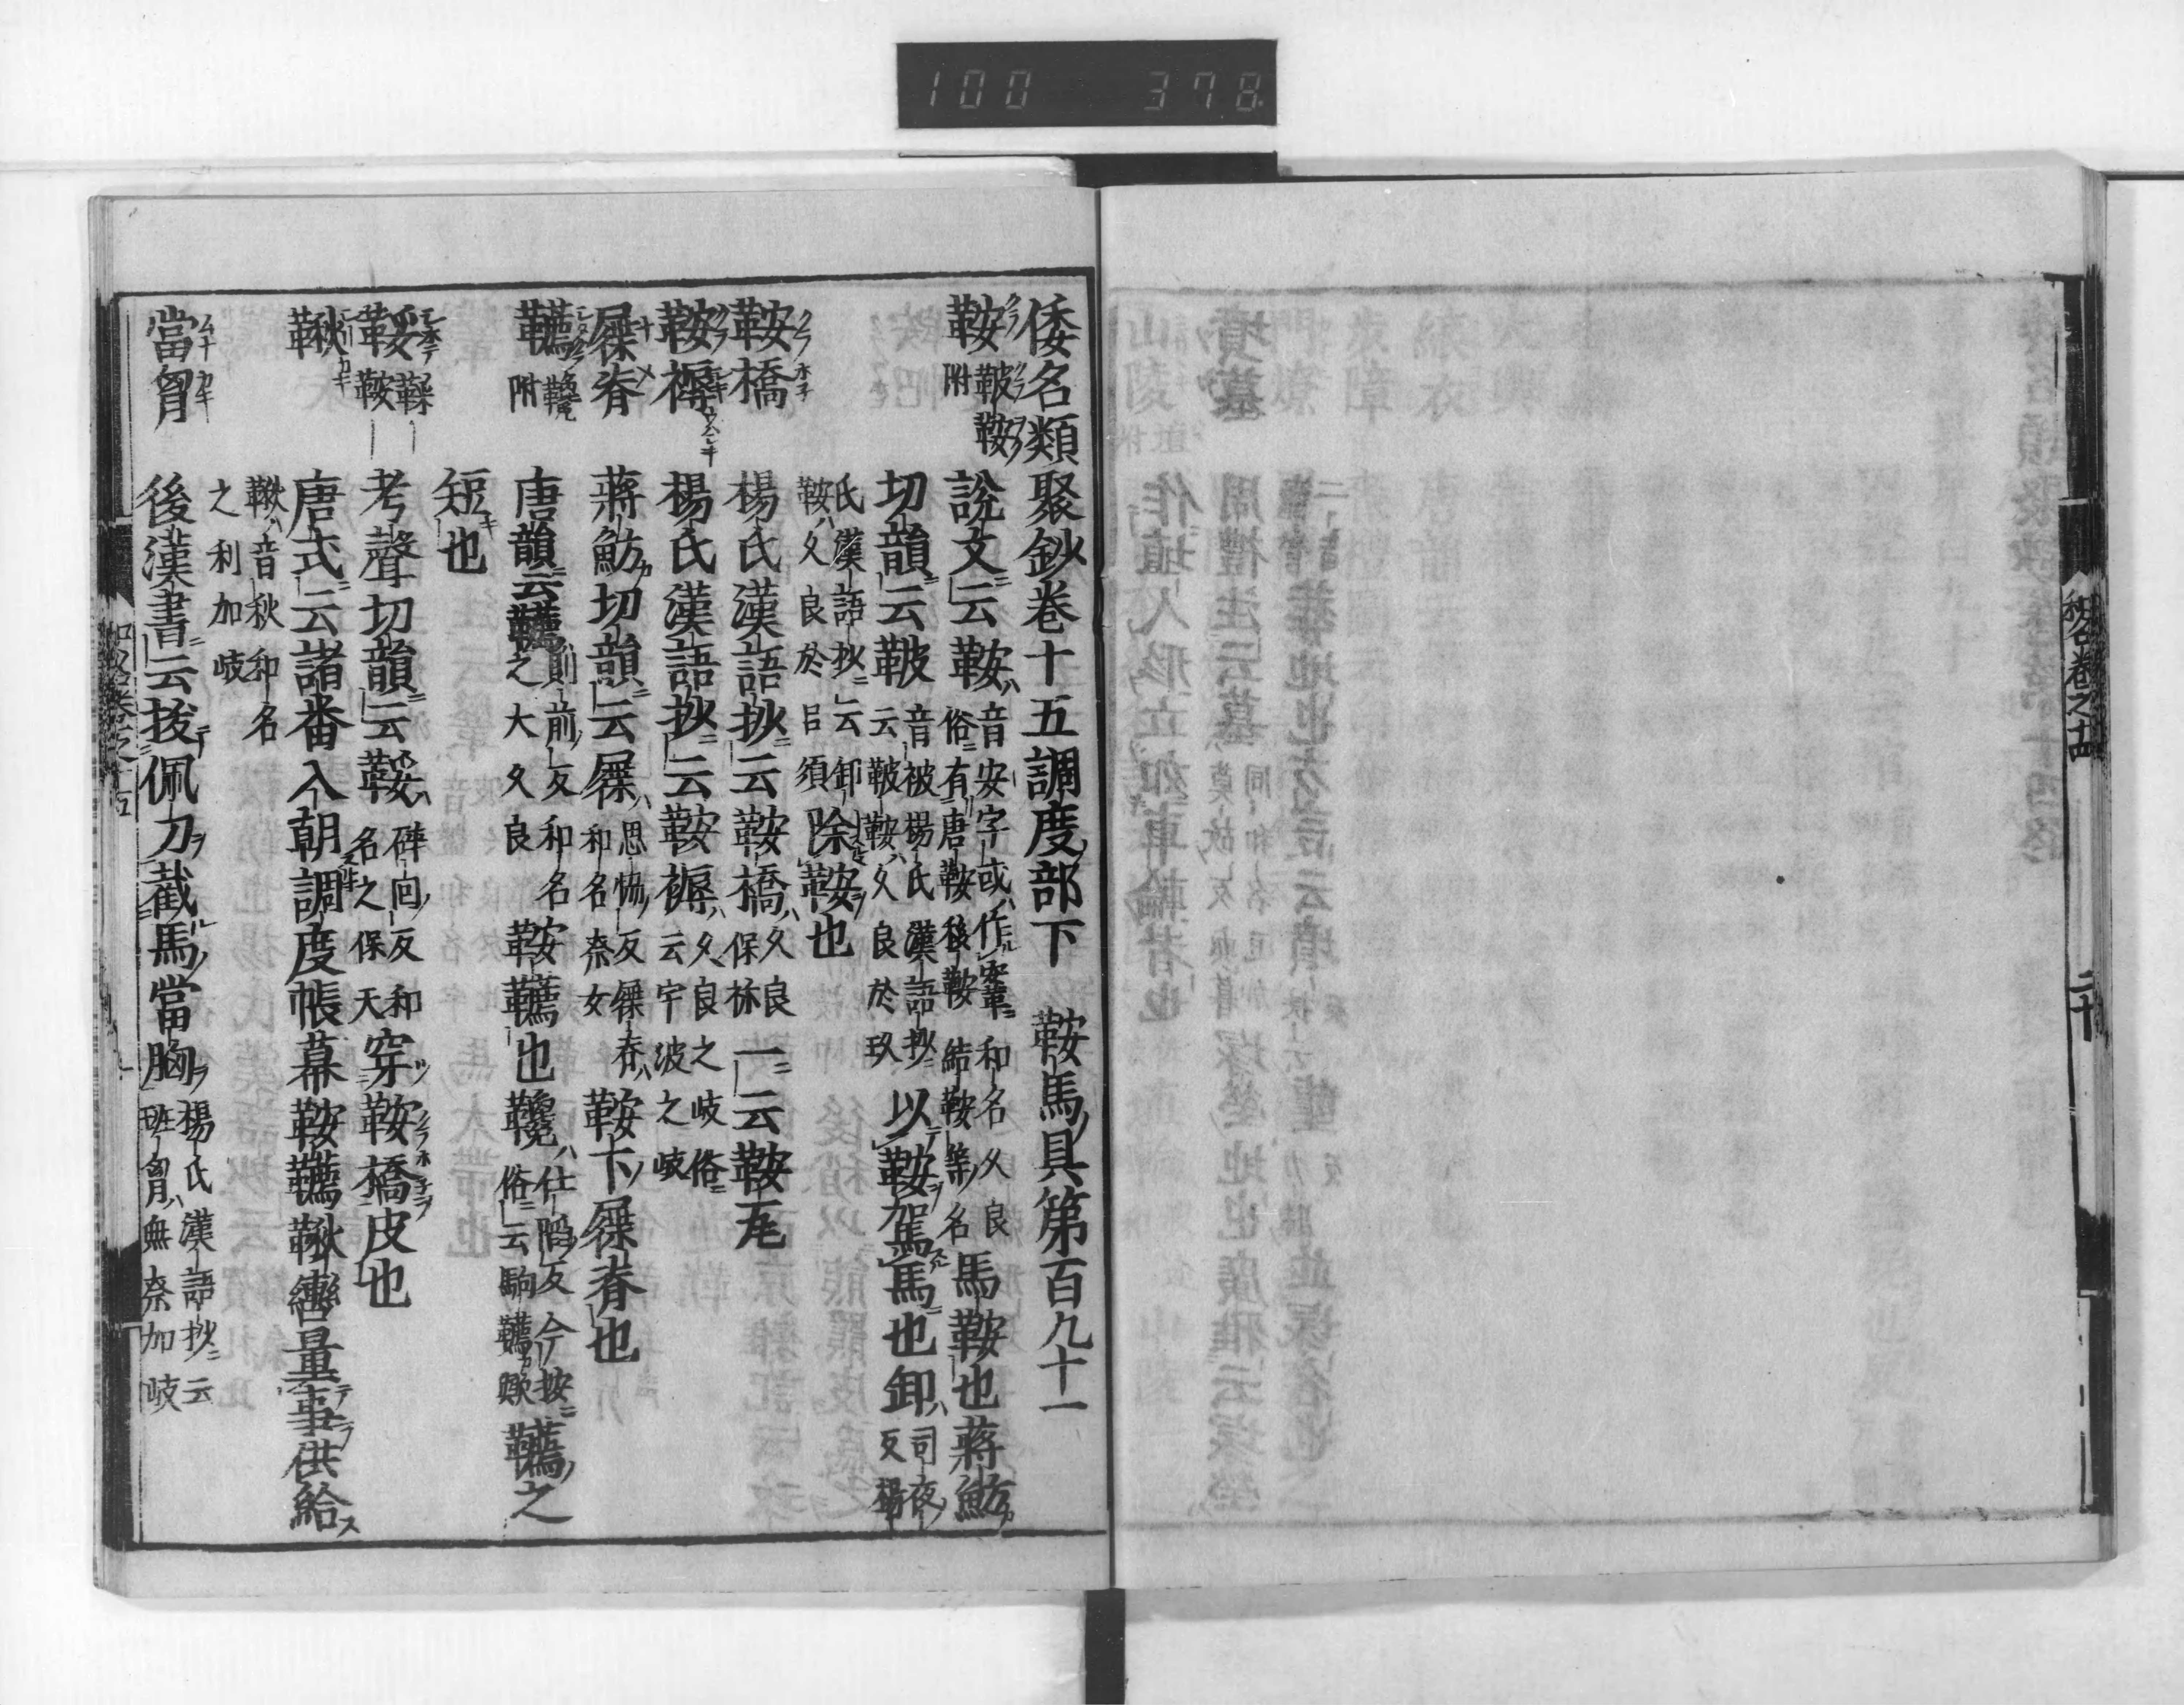 100 378
和名卷之十四
二十
倭名類聚鈔卷十五調度部下 鞍馬具第百九十一
鞍 鞁鞍附 說文云鞍音安字或作鞌和名久良俗有唐鞍移鞍結鞍等名馬鞍也蔣魴
切韻云鞁音被楊氏漢語抄云鞁鞍久良於玖以鞍駕馬也卸司夜反楊
氏漢語抄云卸鞍久良於呂須除鞍也
鞍橋 楊氏漢語抄云鞍橋久良保祢一云鞍瓦
鞍褥 楊氏漢語抄云鞍褥久良之岐俗云宇波之岐
屧脊 蔣魴切韻云屧思協反屧脊和名奈女鞍下屧脊也
韉 附 唐韻云韉則前反和名之太久良鞍韉也
仕陷反今按俗云駒韉歟韉之
短也
鞖 考聲切韻云鞖碎回反和名之保天穿鞍橋皮也
鞦 唐式云諸番入朝調度帳幕鞍韉鞦轡量事供給
鞦音秋和名之利加岐
當胷 後漢書云拔佩刀截馬當胸楊氏漢語抄云班胷無奈加岐